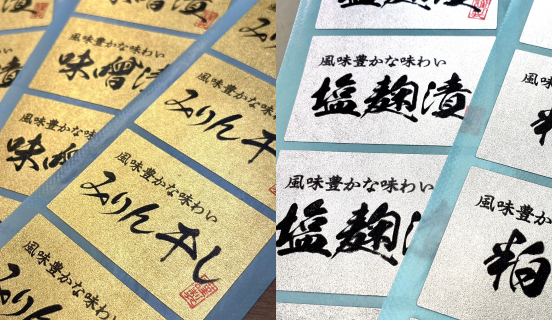 風味豊かな味わい
味噌漬
風味豊かな味
味噌
風味豊かな味わい
みりん干
風味豊かな味わい
みりん干し
風味豊かな味わい
みりん
風味豊かな味わい
塩麹漬
風味豊かな味わい
塩麹漬
風味豊か
風味豊かな
粕